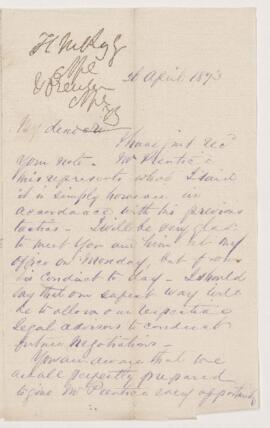 26 April 1873
My dear
I have just recd
your note. Mr Prentice
misrepresents what I said
it is simply however in
accordance with his previous
tactics. I will be very glad
to meet you and him at my
office on Monday, but from
his conduct to day. I should
say that our safest way will
be to allow our respective
legal advisors to conduct
future negotiations.
You are aware that we
are all perfectly prepared
to give Mr Prentice every opportunity